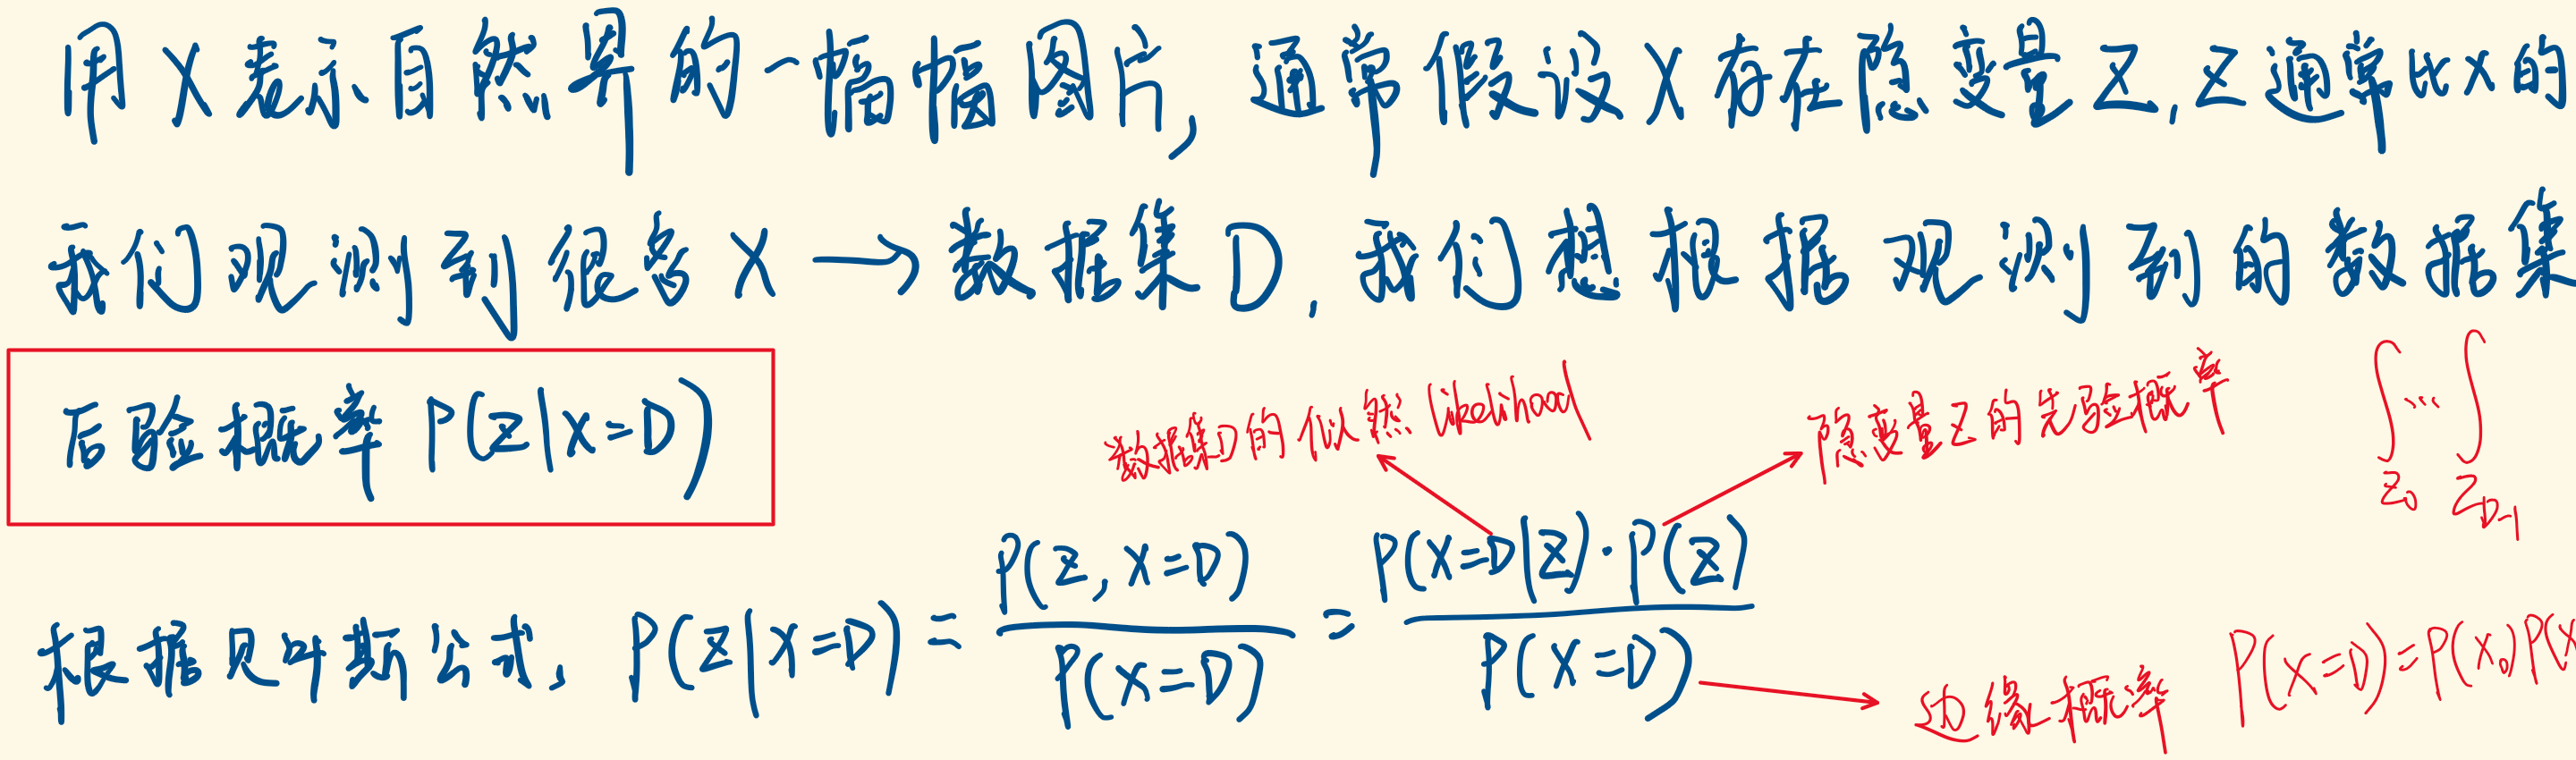 用X表示自然界的一幅幅图片，通常假设X存在隐变量Z，Z通常比X的
我们观测到很多X → 数据集D，我们想根据观测到的数据集
后验概率 P(Z|X=D)
数据集D的似然 likelihood
隐变量Z的先验概率
∫...∫
Z₀ Z_{D-1}
根据贝叶斯公式，P(Z|X=D) = P(Z, X=D) / P(X=D) = P(X=D|Z)·P(Z) / P(X=D)
边缘概率
P(X=D)=P(X₀)P(X